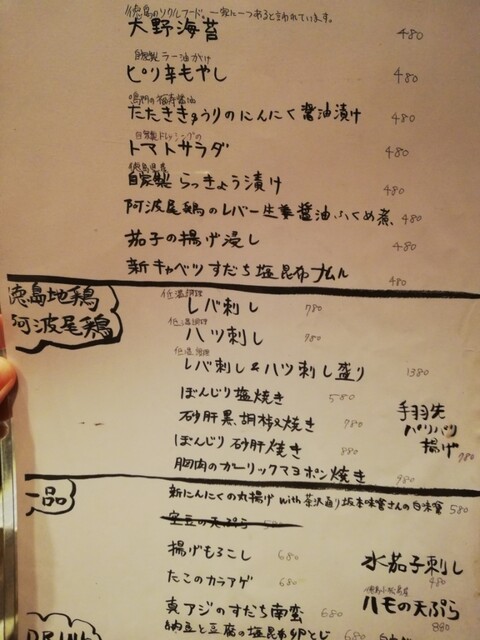 徳島のソウルフード。一家に一つあると言われています。
大野海苔 480
自家製ラー油がけ
ピリ辛もやし 480
鳴門の福寿醤油
たたききゅうりのにんにく醤油漬け 480
自家製ドレッシングの
トマトサラダ 480
徳島県産
自家製 らっきょう漬け 480
阿波尾鶏のレバー生姜醤油ふくめ煮 480
茄子の揚げ浸し 480
新キャベツすだち塩昆布ナムル 480
徳島地鶏
阿波尾鶏
低温調理
レバ刺し 780
低温調理
ハツ刺し 980
低温調理
レバ刺し&ハツ刺し盛り 1380
ぼんじり塩焼き 580
砂肝黒胡椒焼き 780
ぼんじり砂肝焼き 880
胸肉のガーリックマヨポン焼き 980
手羽先
パリパリ
揚げ 780
一品
新にんにくの丸揚げ with 茶沢通り坂本味噌さんの白味噌 580
空豆の天ぷら 580
揚げもろこし 680
たこのカラアゲ 680
真アジのすだち南蛮 680
納豆と豆腐の塩昆布卵とじ 680
水茄子刺し
480
徳島小松島産
ハモの天ぷら
880
DRINK